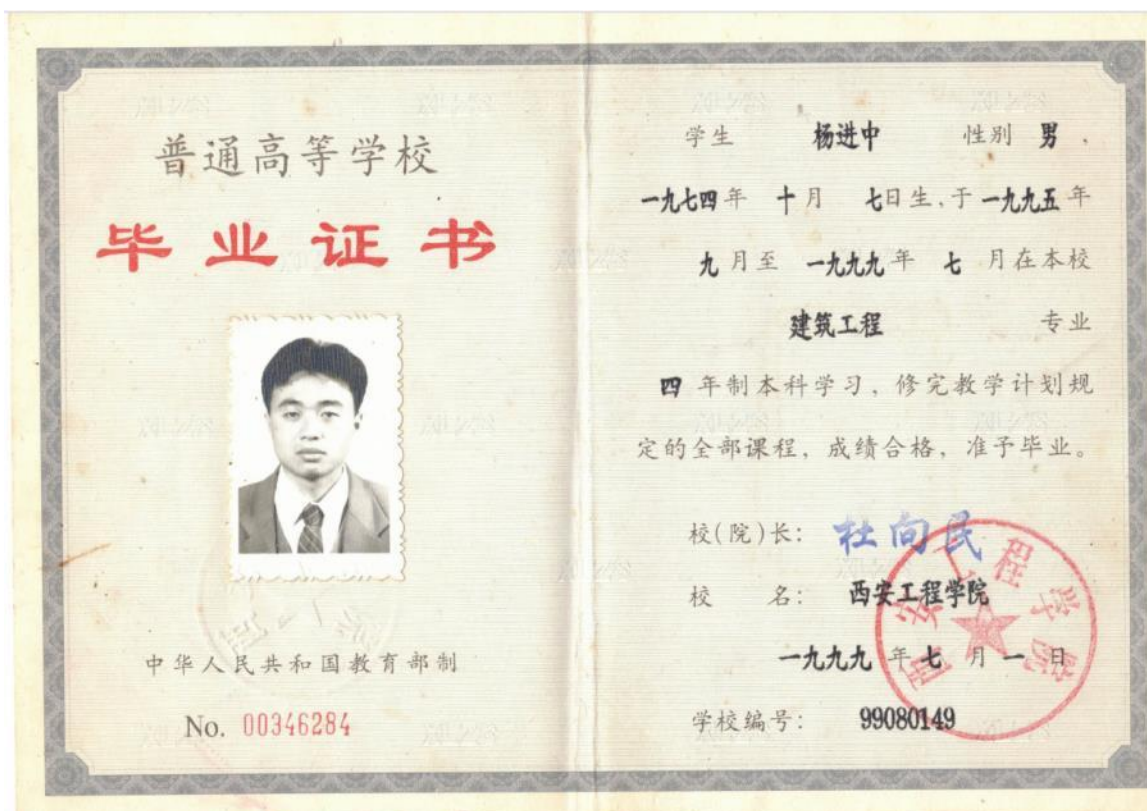 普通高等学校
毕业证书
中华人民共和国教育部制
No. 00346284
学生 杨进中 性别 男
一九七四年 十月 七日生,于一九九五年
九月至 一九九九年 七 月在本校
建筑工程 专业
四 年制本科学习,修完教学计划规
定的全部课程,成绩合格,准予毕业。
校(院)长: 杜向民
校 名: 西安工程学院
一九九九年七月一日
学校编号: 99080149
西安工程学院